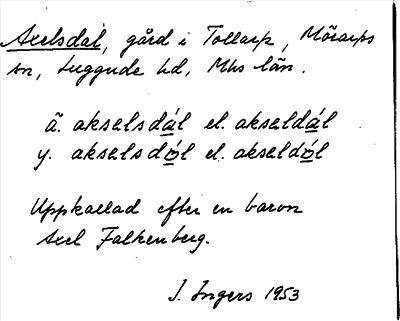 Axelsdal, gård i Tollarp, Mörarps
sn, Luggude hd, Mhs län.
ä. aksəlsdál el. aksəldál
y. aksəlsdól el. aksəldól
Uppkallad efter en baron
Axel Falkenberg.
I. Ingers 1953